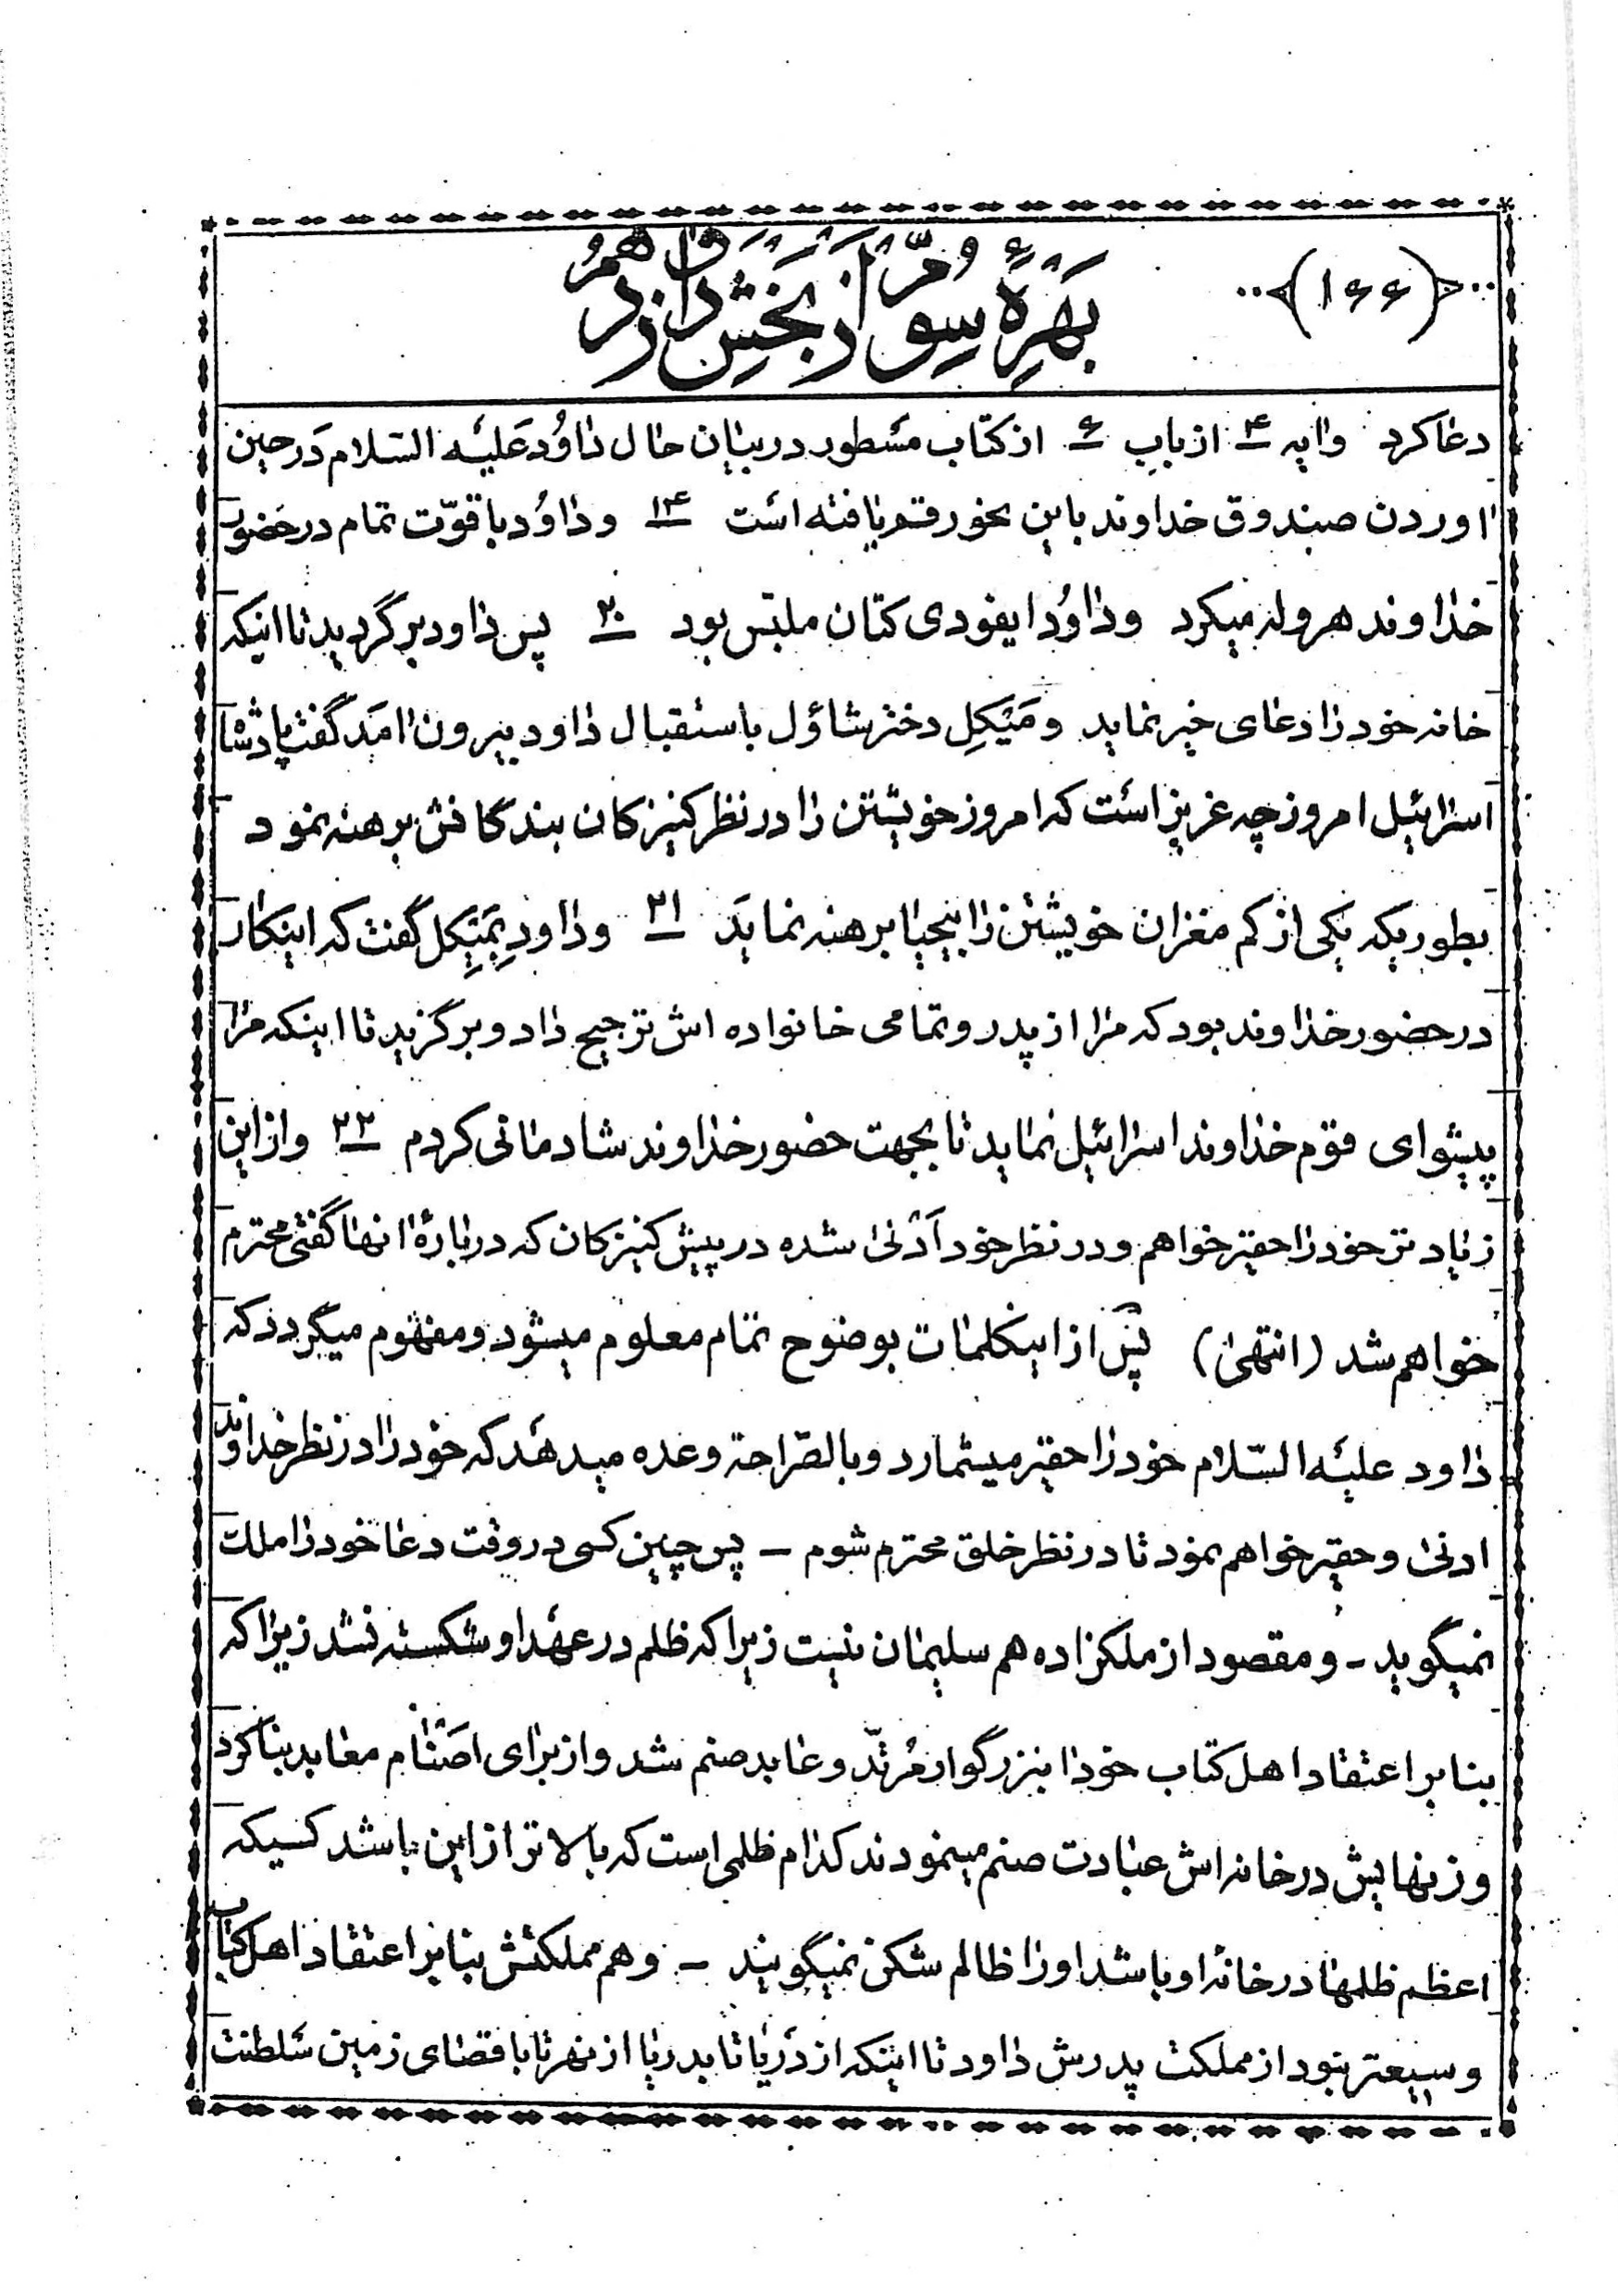 (۱۶۶)
بهرهٔ سوّم از بخش دوازدهم
دعا کرد وایه ۴ از باب ۶ از کتاب مسطور در بیان حال داود علیه السلام در حین
اوردن صندوق خداوند باین نحو رقم یافته است ۱۴ و داود با قوّت تمام در حضور
خداوند هروله میکرد و داود ایفودی کتان ملبّس بود ۲۰ پس داود برگردید تا اینکه
خانه خود را دعای خیر نماید و میکل دختر شاؤل باستقبال داود بیرون امد گفت پادشاه
اسرائیل امروز چه عزیز است که امروز خویشتن را در نظر کنیزکان بندگانش برهنه نمود
بطوریکه یکی از کم مغزان خویشتن را بیحیا برهنه نماید ۲۱ و داود بمیکل گفت که اینکار
در حضور خداوند بود که مرا از پدر و تمامی خانواده اش ترجیح داد و برگزید تا اینکه مرا
پیشوای قوم خداوند اسرائیل نماید تا بجهت حضور خداوند شادمانی کردم ۲۲ و از این
زیادتر خود را حقیر خواهم و در نظر خود آدنی شده در پیش کنیزکان که دربارهٔ انها گفتی محترم
خواهم شد (انتهی) پس از اینکلمات بوضوح تمام معلوم میشود و مفهوم میگردد که
داود علیه السّلام خود را حقیر میشمارد و بالصّراحة وعده میدهد که خود را در نظر خداوند
ادنی و حقیر خواهم نمود تا در نظر خلق محترم شوم – پس چنین کسی در وقت دعا خود را ملک
نمیگوید – و مقصود از ملکزاده هم سلیمان نیست زیرا که ظلم در عهد او شکسته نشد زیرا که
بنا بر اعتقاد اهل کتاب خود انبزرگوار مرتدّ و عابد صنم شد و از برای اصنام معابد بنا کرد
و زنهایش در خانه اش عبادت صنم مینمودند کدام ظلمی است که بالاتر از این باشد کسیکه
اعظم ظلمها در خانهٔ او باشد او را ظالم شکن نمیگویند – و هم مملکتش بنابر اعتقاد اهل کتاب
وسیعتر نبود از مملکت پدرش داود تا اینکه از دریا تا بدریا از نهر تا باقصای زمین سلطنت